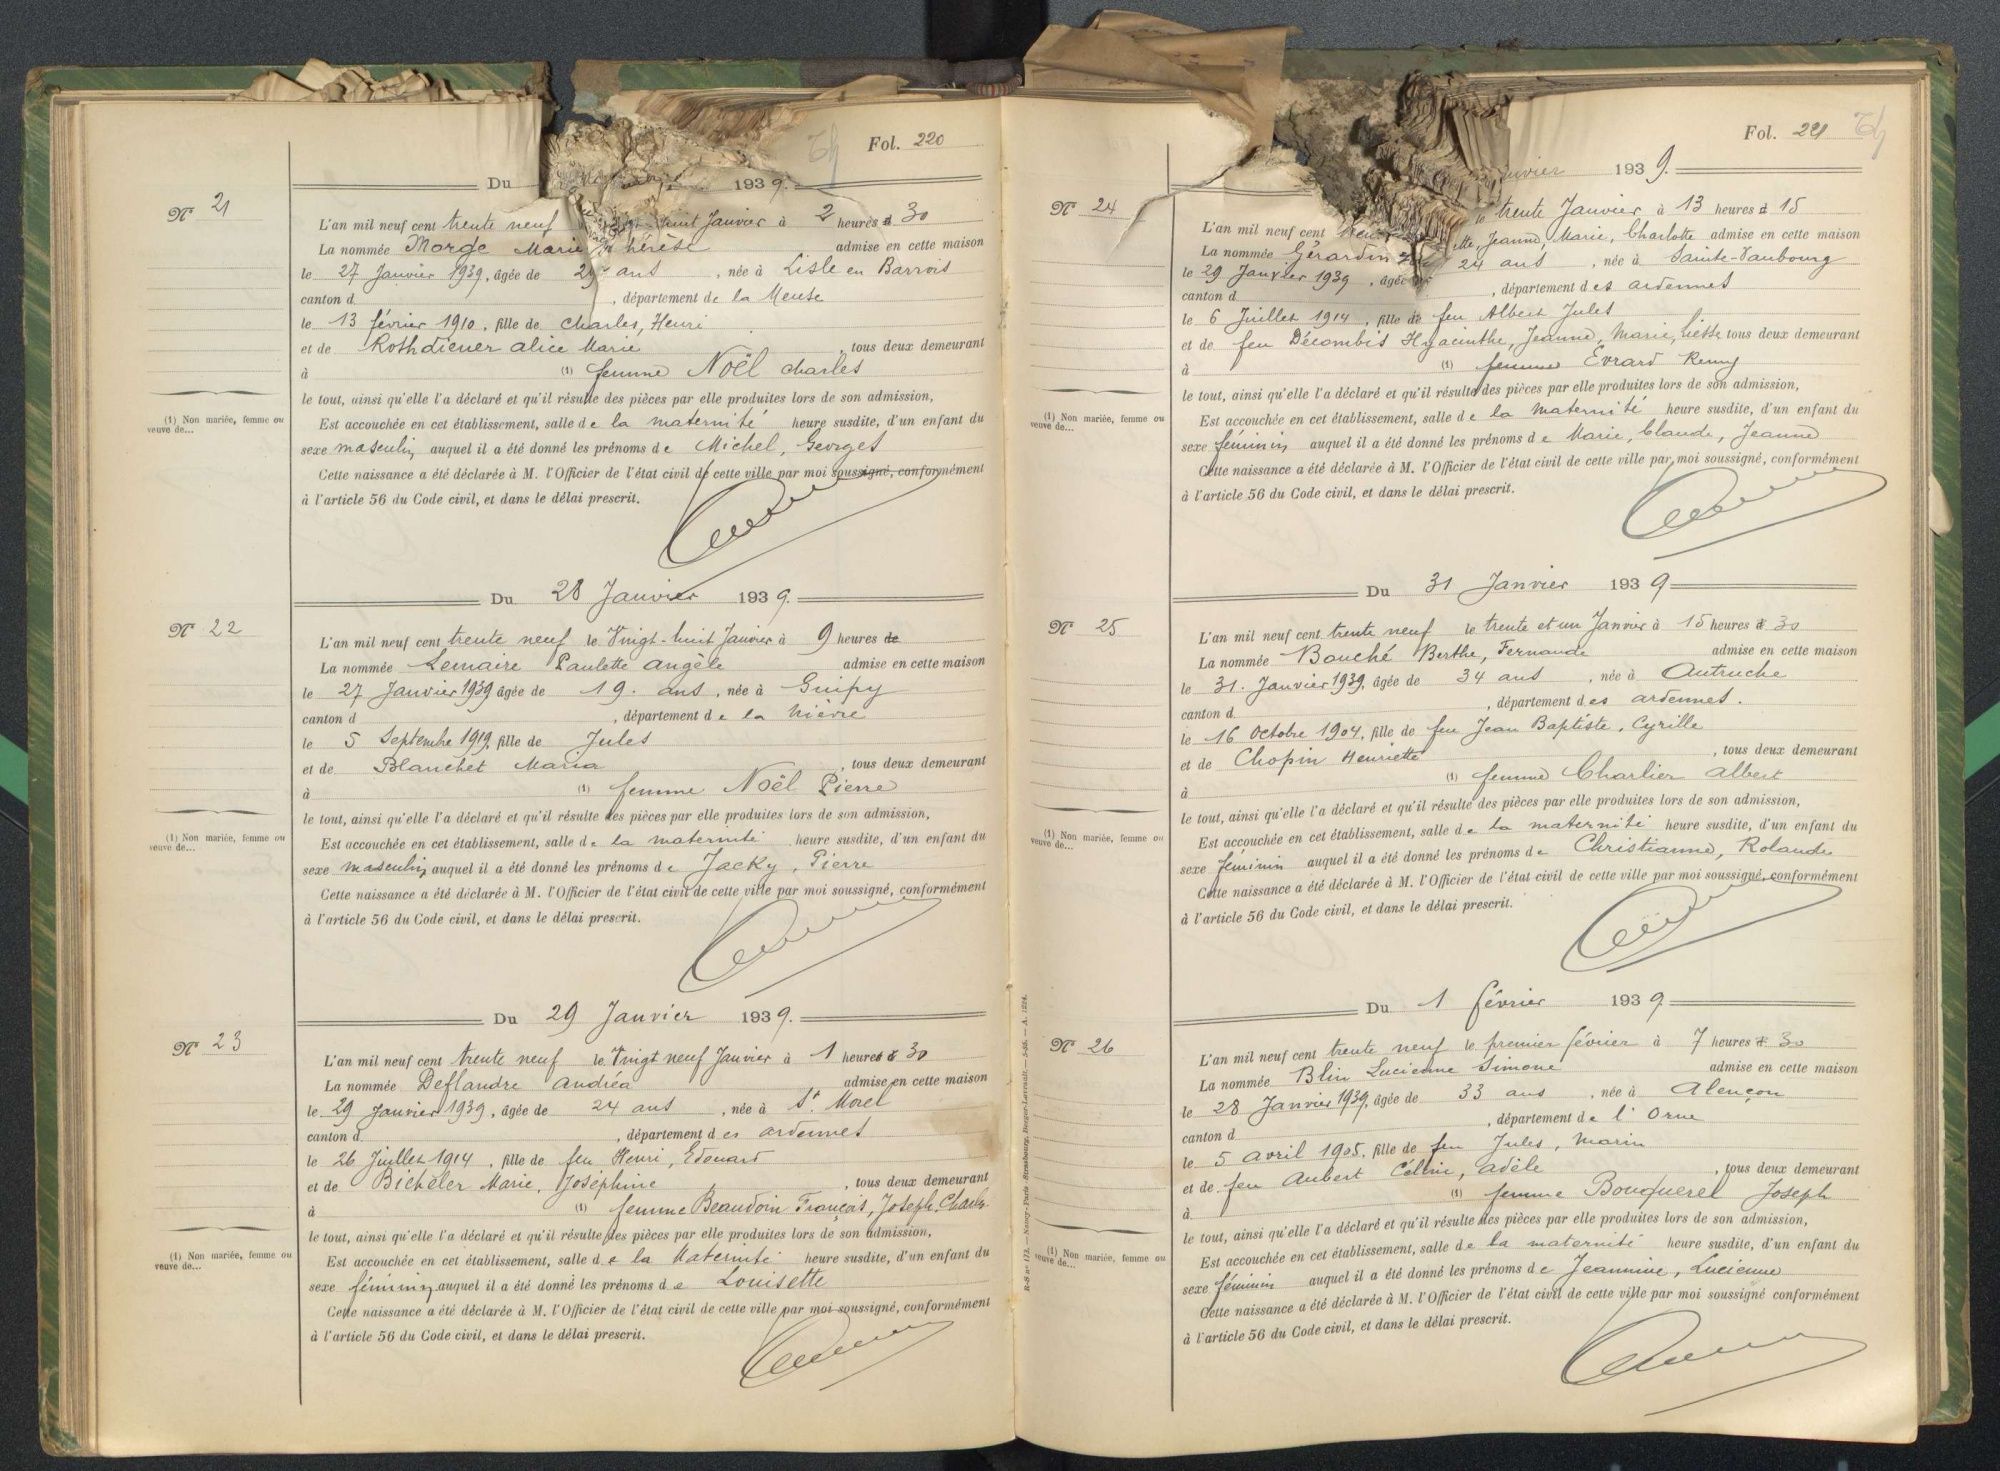 Fol. 220
Du 1939.
N° 21
L'an mil neuf cent trente neuf huit Janvier à 2 heures 30
La nommée Morge Marie Thérèse admise en cette maison
le 27 Janvier 1939, âgée de ans, née à Lisle en Barrois
canton d , département de la Meuse
le 13 février 1910, fille de Charles, Henri
et de Rothdiener alice Marie , tous deux demeurant
à (1) femme Noël Charles
le tout, ainsi qu'elle l'a déclaré et qu'il résulte des pièces par elle produites lors de son admission,
(1) Non mariée, femme ou
veuve de...
Est accouchée en cet établissement, salle de la maternité heure susdite, d'un enfant du
sexe masculin auquel il a été donné les prénoms de Michel, Georges
Cette naissance a été déclarée à M. l'Officier de l'état civil de cette ville par moi soussigné, conformément
à l'article 56 du Code civil, et dans le délai prescrit.
Du 28 Janvier 1939.
N° 22
L'an mil neuf cent trente neuf le Vingt-huit Janvier à 9 heures de
La nommée Lemaire Paulette angèle admise en cette maison
le 27 Janvier 1939 âgée de 19. ans, née à Guipy
canton d , département de la Nièvre
le 5 Septembre 1919, fille de Jules
et de Blanchet Maria , tous deux demeurant
à (1) femme Noël Pierre
le tout, ainsi qu'elle l'a déclaré et qu'il résulte des pièces par elle produites lors de son admission,
(1) Non mariée, femme ou
veuve de...
Est accouchée en cet établissement, salle de la maternité heure susdite, d'un enfant du
sexe masculin auquel il a été donné les prénoms de Jacky, Pierre
Cette naissance a été déclarée à M. l'Officier de l'état civil de cette ville par moi soussigné, conformément
à l'article 56 du Code civil, et dans le délai prescrit.
Du 29 Janvier 1939.
N° 23
L'an mil neuf cent trente neuf le Vingt neuf Janvier à 1 heures 30
La nommée Deflandre andréa admise en cette maison
le 29 Janvier 1939, âgée de 24 ans, née à St Morel
canton d , département des ardennes
le 26 Juillet 1914, fille de feu Henri, Edouard
et de Bichéler Marie, Joséphine , tous deux demeurant
à (1) femme Beaudoin François, Joseph, Charles
le tout, ainsi qu'elle l'a déclaré et qu'il résulte des pièces par elle produites lors de son admission,
(1) Non mariée, femme ou
veuve de...
Est accouchée en cet établissement, salle de la Maternité heure susdite, d'un enfant du
sexe féminin auquel il a été donné les prénoms de Louisette
Cette naissance a été déclarée à M. l'Officier de l'état civil de cette ville par moi soussigné, conformément
à l'article 56 du Code civil, et dans le délai prescrit.
R-S n° 173. — Nancy-Paris-Strasbourg, Berger-Levrault. — A. 1224.
Fol. 221
1939.
N° 24
L'an mil neuf cent le trente Janvier à 13 heures 15
La nommée Gérardin Jeanne, Marie, Charlotte admise en cette maison
le 29 Janvier 1939, âgée 24 ans, née à Sainte-Vaubourg
canton d , département des ardennes
le 6 Juillet 1914, fille de feu Albert Jules
et de feu Décombis Hyacinthe, Jeanne, Marie, tous deux demeurant
à (1) femme Evrard Remy
le tout, ainsi qu'elle l'a déclaré et qu'il résulte des pièces par elle produites lors de son admission,
(1) Non mariée, femme ou
veuve de...
Est accouchée en cet établissement, salle de la maternité heure susdite, d'un enfant du
sexe féminin auquel il a été donné les prénoms de Marie, Claude, Jeanne
Cette naissance a été déclarée à M. l'Officier de l'état civil de cette ville par moi soussigné, conformément
à l'article 56 du Code civil, et dans le délai prescrit.
Du 31 Janvier 1939
N° 25
L'an mil neuf cent trente neuf le trente et un Janvier à 15 heures 30
La nommée Bouché Berthe, Fernande admise en cette maison
le 31. Janvier 1939, âgée de 34 ans, née à Autruche
canton d , département des ardennes.
le 16 Octobre 1904, fille de feu Jean Baptiste, Cyrille
et de Chopin Henriette , tous deux demeurant
à (1) femme Charlier albert
le tout, ainsi qu'elle l'a déclaré et qu'il résulte des pièces par elle produites lors de son admission,
(1) Non mariée, femme ou
veuve de...
Est accouchée en cet établissement, salle de la maternité heure susdite, d'un enfant du
sexe féminin auquel il a été donné les prénoms de Christianne, Rolande
Cette naissance a été déclarée à M. l'Officier de l'état civil de cette ville par moi soussigné, conformément
à l'article 56 du Code civil, et dans le délai prescrit.
Du 1 février 1939.
N° 26
L'an mil neuf cent trente neuf le premier février à 7 heures 30
La nommée Blin Lucienne Simone admise en cette maison
le 28 Janvier 1939, âgée de 33 ans, née à Alençon
canton d , département de l'Orne
le 5 avril 1905, fille de feu Jules, Marin
et de feu Aubert Céline, adèle , tous deux demeurant
à (1) femme Bouquerel Joseph
le tout, ainsi qu'elle l'a déclaré et qu'il résulte des pièces par elle produites lors de son admission,
(1) Non mariée, femme ou
veuve de...
Est accouchée en cet établissement, salle de la maternité heure susdite, d'un enfant du
sexe féminin auquel il a été donné les prénoms de Jeannine, Lucienne
Cette naissance a été déclarée à M. l'Officier de l'état civil de cette ville par moi soussigné conformément
à l'article 56 du Code civil, et dans le délai prescrit.